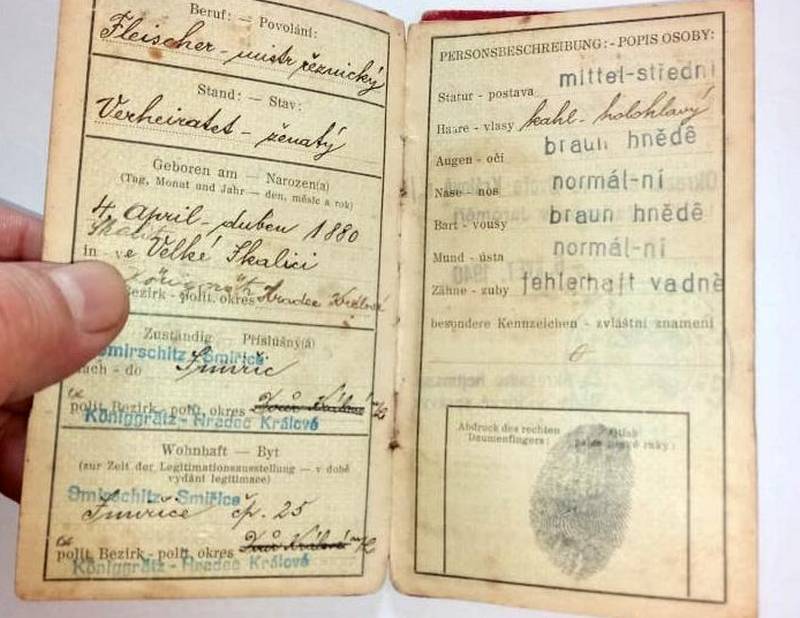 Beruf: — Povolání:
Fleischer - mistr řeznický
Stand: — Stav:
Verheiratet - ženatý
Geboren am — Narozen(a)
(Tag, Monat und Jahr — den, měsíc a rok)
4. April - duben 1880
Skalitz
in - ve Velké Skalici
Bezirk - polit. okres Hradec Králové
Zuständig Příslušný(á)
Smirschitz-Smiřice
nach - do Smiřic
polit. Bezirk - polit. okres Dvůr Králové
Königgrätz - Hradec Králové
Wohnhaft — Byt
(zur Zeit der Legitimationsausstellung — v době
vydání legitimace)
Smirschitz-Smiřice
Smiřice čp. 25
polit. Bezirk - polit. okres Dvůr Králové
Königgrätz - Hradec Králové
PERSONSBESCHREIBUNG: - POPIS OSOBY:
Statur - postava mittel-střední
Haare - vlasy kahl - holohlavý
Augen - oči braun hnědé
Nase - nos normál-ní
Bart - vousy braun hnědé
Mund - ústa normál-ní
Zähne - zuby fehlerhaft vadné
besondere Kennzeichen - zvláštní znamení
Abdruck des rechten
Daumenfingers:
Otisk
palce pravé ruky: